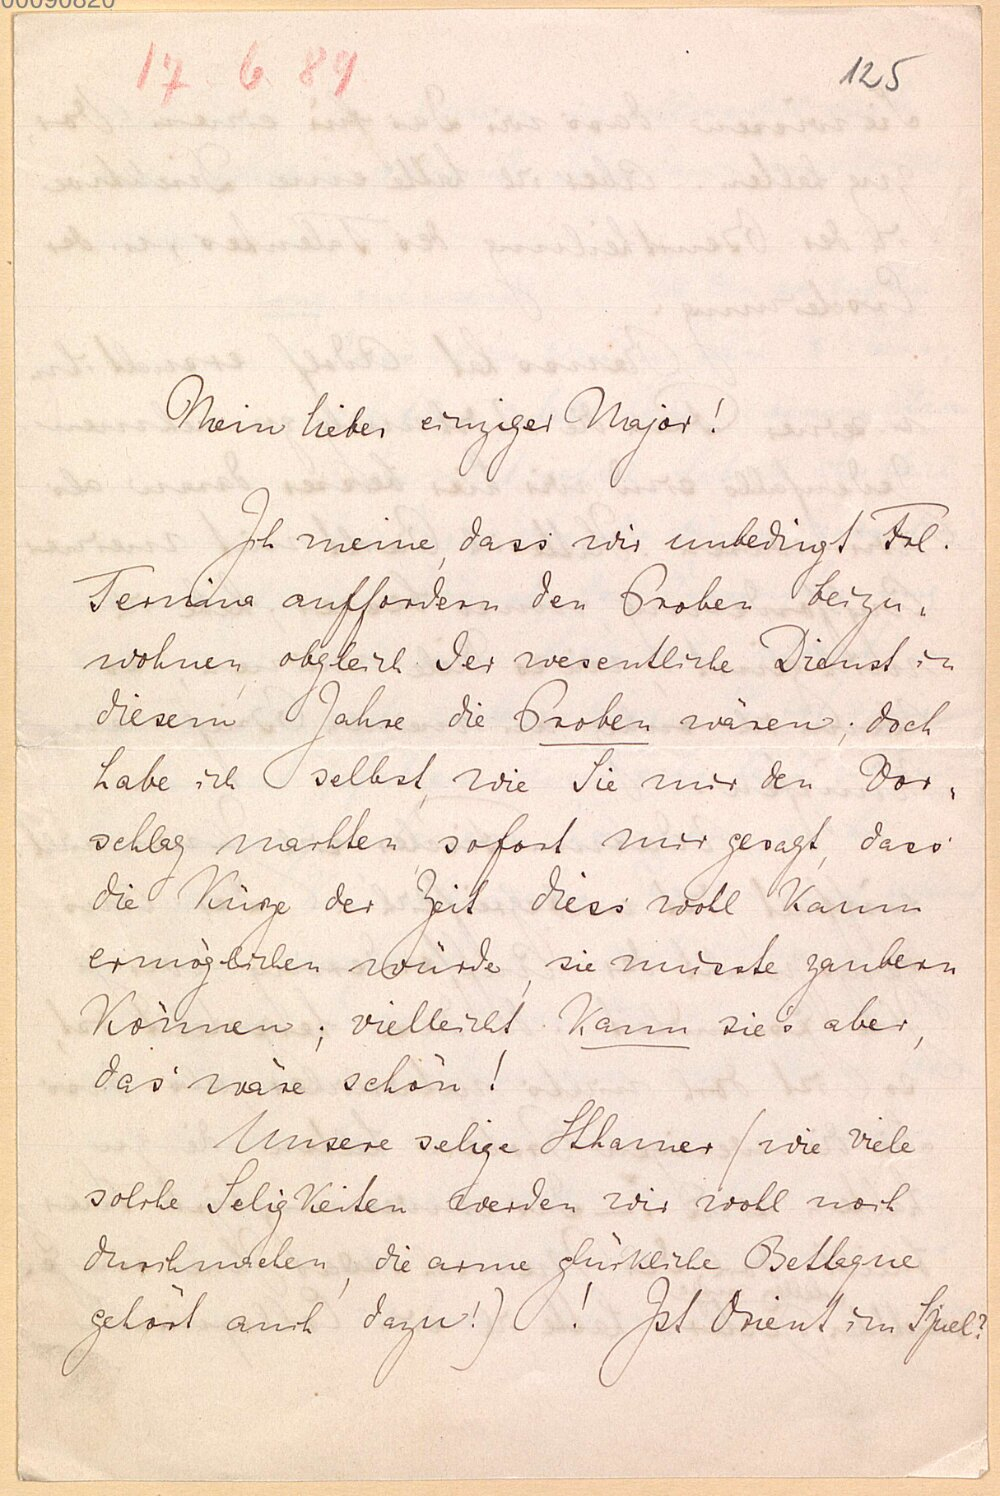 00090820
17. 6. 89
125
Mein lieber einziger Major!
Ich meine, dass wir unbedingt Frl.
Ternina auffordern den Proben beizu„
wohnen, obgleich der wesentliche Dienst in
diesem Jahre die Proben wären; doch
habe ich selbst, wie Sie mir den Vor„
schlag machten, sofort mir gesagt, dass
die Kürze der Zeit diess wohl kaum
ermöglichen würde, sie müsste zaubern
können; vielleicht kann sie's aber,
das wäre schön!
Unsere selige Sthamer (wie viele
solche Seligkeiten werden wir wohl noch
durchmachen, die arme glückliche Bettaque
gehört auch dazu!)! Ist Orient im Spiel?